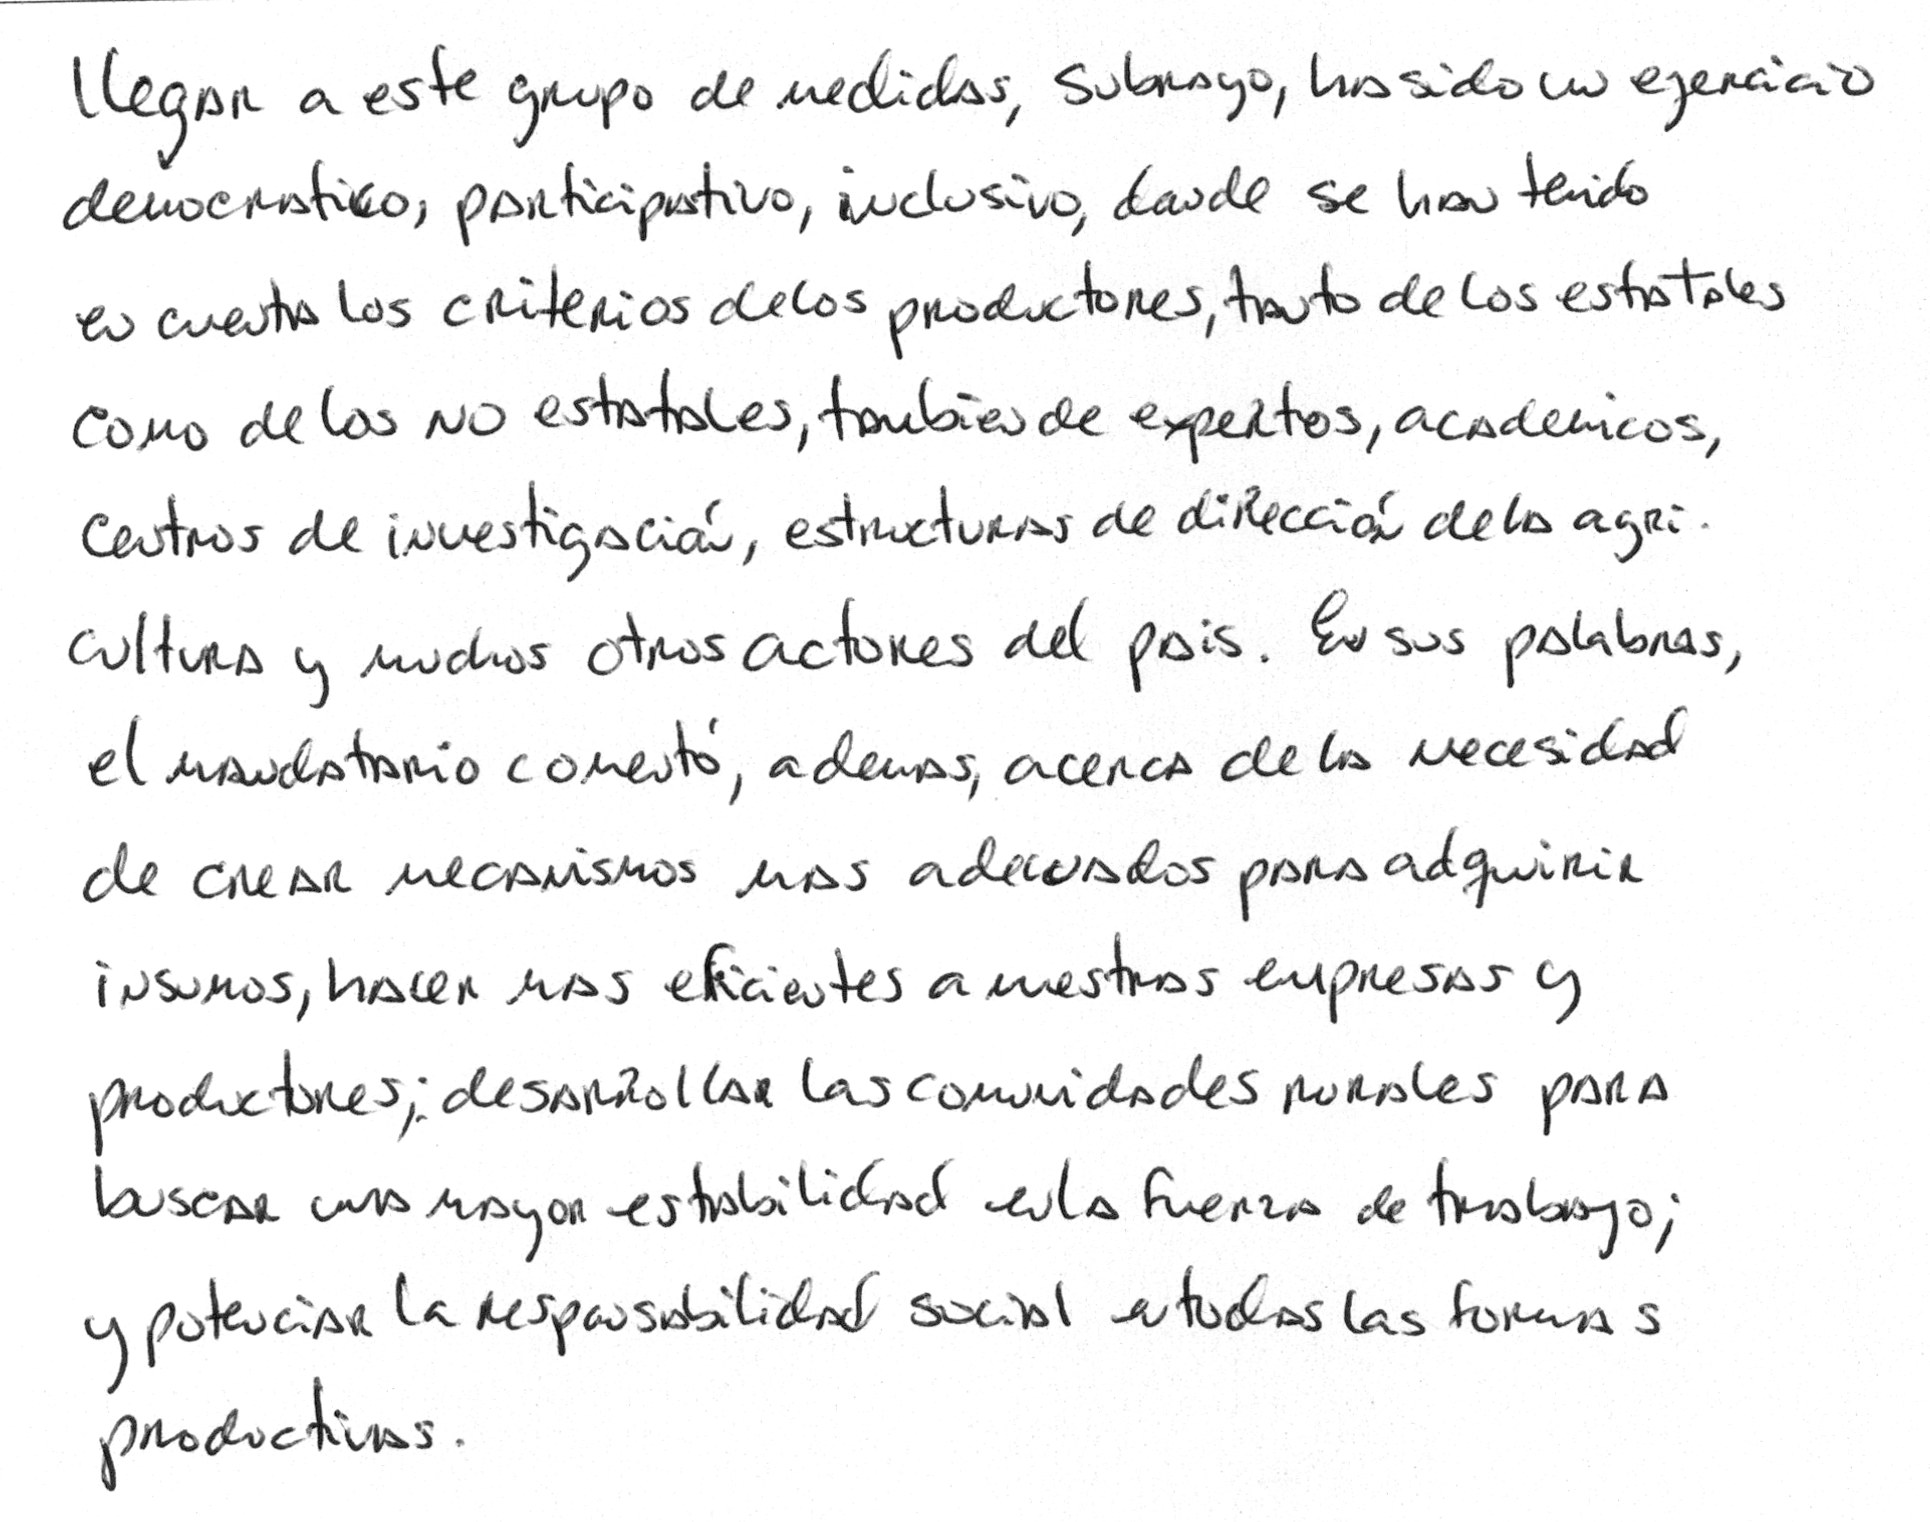 llegar a este grupo de medidas, subrayo, ha sido un ejercicio
democratico, participativo, inclusivo, donde se han tenido
en cuenta los criterios de los productores, tanto de los estatales
como de los no estatales, tambien de expertos, academicos,
centros de investigación, estructuras de dirección de la agri-
cultura y muchos otros actores del pais. En sus palabras,
el mandatario comentó, ademas, acerca de la necesidad
de crear mecanismos mas adecuados para adquirir
insumos, hacer mas eficientes a nuestras empresas y
productores; desarrollar las comunidades rurales para
buscar una mayor estabilidad en la fuerza de trabajo;
y potenciar la responsabilidad social en todas las formas
productivas.